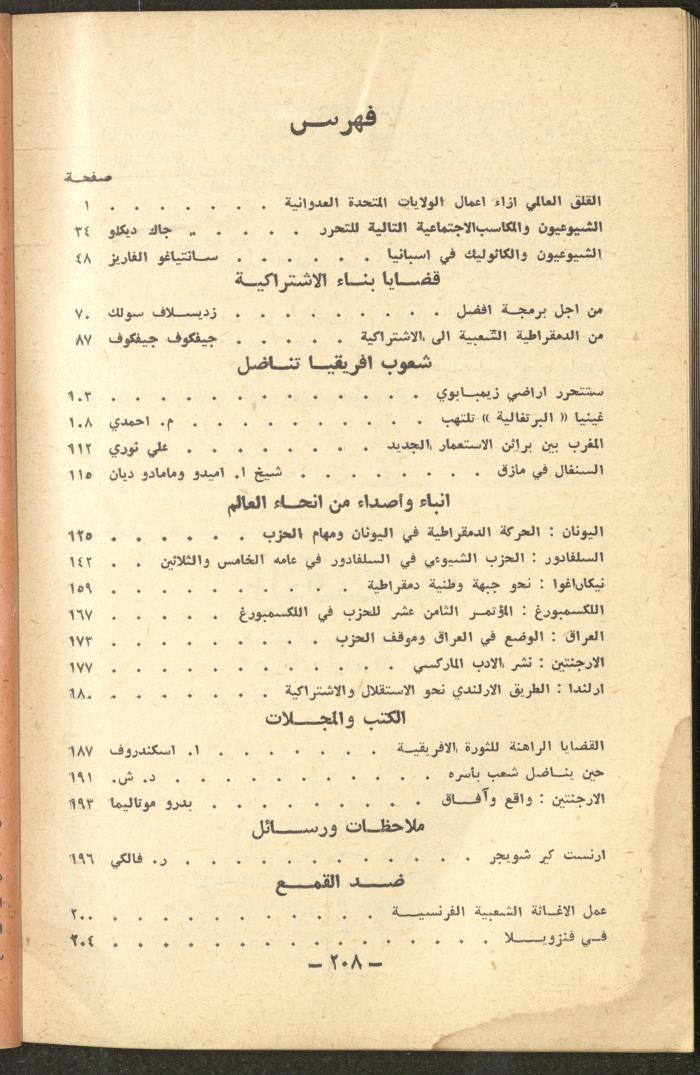 فهرس
صفحة
القلق العالمي ازاء اعمال الولايات المتحدة العدوانية . . . . . . . ١
الشيوعيون والمكاسب الاجتماعية التالية للتحرر . . . . . جاك ديكلو ٣٤
الشيوعيون والكاثوليك في اسبانيا . . . . . . سانتياغو الفاريز ٤٨
قضايا بناء الاشتراكية
من اجل برمجة افضل . . . . . . . . . زديسلاف سولك ٧٠
من الدمقراطية الشعبية الى الاشتراكية . . . . . جيفكوف جيفكوف ٨٧
شعوب افريقيا تناضل
ستتحرر اراضي زيمبابوي . . . . . . . . . . . . . ١٠٣
غينيا « البرتغالية » تلتهب . . . . . . . . . . م. احمدي ١٠٨
المغرب بين براثن الاستعمار الجديد . . . . . . . . علي نوري ١١٢
السنغال في مازق . . . . . . . . شيخ ا. اميدو ومامادو ديان ١١٥
انباء وأصداء من انحاء العالم
اليونان : الحركة الدمقراطية في اليونان ومهام الحزب . . . . . . ١٢٥
السلفادور : الحزب الشيوعي في السلفادور في عامه الخامس والثلاثين . . ١٤٢
نيكاراغوا : نحو جبهة وطنية دمقراطية . . . . . . . . . ١٥٩
اللكسمبورغ : المؤتمر الثامن عشر للحزب في اللكسمبورغ . . . . . ١٦٧
العراق : الوضع في العراق وموقف الحزب . . . . . . . . ١٧٣
الارجنتين : نشر الادب الماركسي . . . . . . . . . . . ١٧٧
ارلندا : الطريق الارلندي نحو الاستقلال والاشتراكية . . . . . . . ١٨٠
الكتب والمجلات
القضايا الراهنة للثورة الافريقية . . . . . . . ا. اسكندروف ١٨٧
حين يناضل شعب بأسره . . . . . . . . . . . د. ش. ١٩١
الارجنتين : واقع وآفاق . . . . . . . . . بدرو موتاليما ١٩٣
ملاحظات ورسائل
ارنست كير شويجر . . . . . . . . . . . . ر. فالكي ١٩٦
ضد القمع
عمل الاغاثة الشعبية الفرنسية . . . . . . . . . . . ٢٠٠
في فنزويلا . . . . . . . . . . . . . . . . ٢٠٤
– ٢٠٨ –